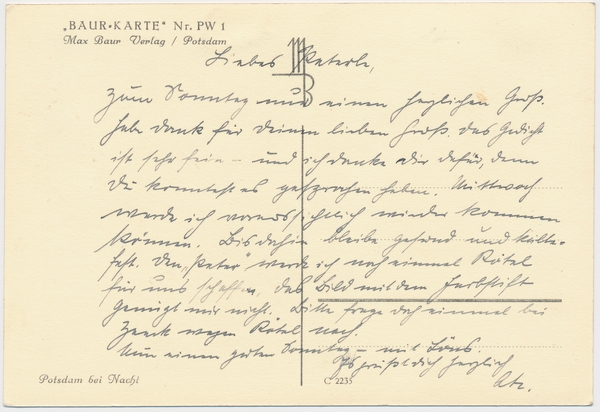 „BAUR-KARTE“ Nr. PW 1
Max Baur Verlag / Potsdam
Liebes Peterle,
MB
zum Sonntag nur einen herzlichen Gruß.
Hab Dank für Deinen lieben Gruß. Das Gedicht
ist sehr fein – und ich danke Dir dafür, denn
Du konntest es gesprochen haben. Mittwoch
werde ich voraussichtlich wieder kommen
können. Bis dahin bleibe gesund und kälte-
fest. Den „Peter“ werde ich noch einmal Rötel
für uns schaffen, das Bild mit dem Farbstift
genügt mir nicht. Bitte frage doch einmal bei
wegen Rötel nach.
Nun einen guten Sonntag – mit Löns.
Es grüßt Dich herzlich
Potsdam bei Nacht
C 2235